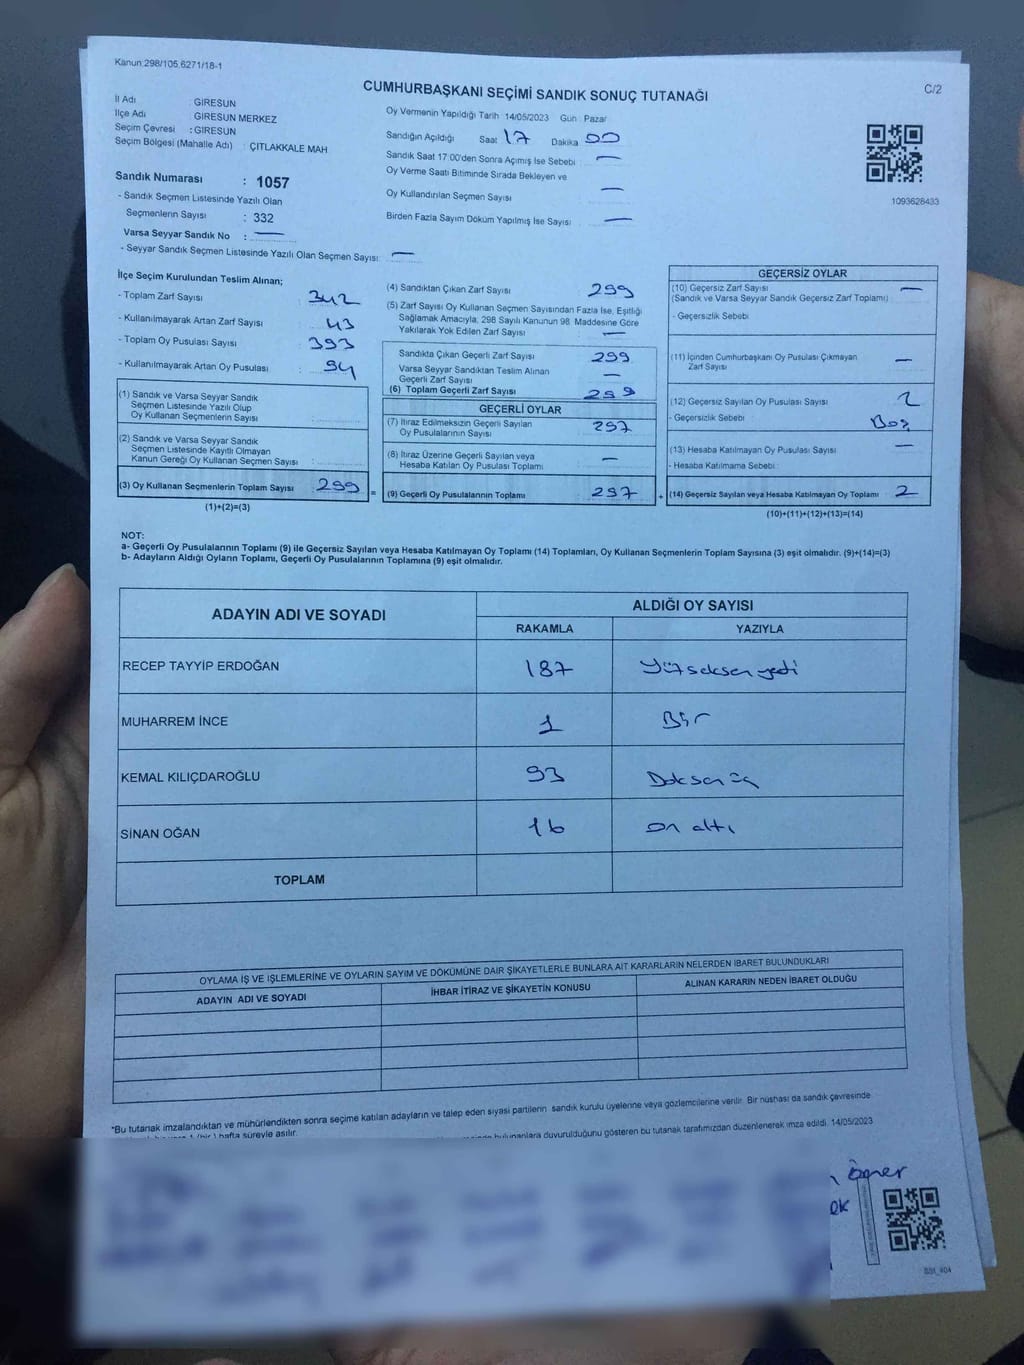 Kanun:298/105,6271/18-1
CUMHURBAŞKANI SEÇİMİ SANDIK SONUÇ TUTANAĞI
C/2
İl Adı : GİRESUN
İlçe Adı : GİRESUN MERKEZ
Seçim Çevresi : GİRESUN
Seçim Bölgesi (Mahalle Adı) : ÇITLAKKALE MAH
Sandık Numarası : 1057
- Sandık Seçmen Listesinde Yazılı Olan
Seçmenlerin Sayısı : 332
Varsa Seyyar Sandık No : —
- Seyyar Sandık Seçmen Listesinde Yazılı Olan Seçmen Sayısı: —
Oy Vermenin Yapıldığı Tarih 14/05/2023 Gün : Pazar
Sandığın Açıldığı Saat 17 Dakika 00
Sandık Saat 17:00'den Sonra Açımış İse Sebebi : —
Oy Verme Saati Bitiminde Sırada Bekleyen ve
Oy Kullandırılan Seçmen Sayısı : —
Birden Fazla Sayım Döküm Yapılmış İse Sayısı : —
1093628433
İlçe Seçim Kurulundan Teslim Alınan;
- Toplam Zarf Sayısı : 342
- Kullanılmayarak Artan Zarf Sayısı : 43
- Toplam Oy Pusulası Sayısı : 393
- Kullanılmayarak Artan Oy Pusulası : 94
(1) Sandık ve Varsa Seyyar Sandık
Seçmen Listesinde Yazılı Olup
Oy Kullanan Seçmenlerin Sayısı :
(2) Sandık ve Varsa Seyyar Sandık
Seçmen Listesinde Kayıtlı Olmayan
Kanun Gereği Oy Kullanan Seçmen Sayısı :
(3) Oy Kullanan Seçmenlerin Toplam Sayısı : 299 =
(1)+(2)=(3)
(4) Sandıktan Çıkan Zarf Sayısı : 299
(5) Zarf Sayısı Oy Kullanan Seçmen Sayısından Fazla İse, Eşitliği
Sağlamak Amacıyla, 298 Sayılı Kanunun 98. Maddesine Göre
Yakılarak Yok Edilen Zarf Sayısı : —
Sandıkta Çıkan Geçerli Zarf Sayısı : 299
Varsa Seyyar Sandıktan Teslim Alınan
Geçerli Zarf Sayısı : —
(6) Toplam Geçerli Zarf Sayısı : 299
GEÇERLİ OYLAR
(7) İtiraz Edilmeksizin Geçerli Sayılan
Oy Pusulalarının Sayısı : 297
(8) İtiraz Üzerine Geçerli Sayılan veya
Hesaba Katılan Oy Pusulası Toplamı : —
(9) Geçerli Oy Pusulalarının Toplamı : 297 +
GEÇERSİZ OYLAR
(10) Geçersiz Zarf Sayısı : —
(Sandık ve Varsa Seyyar Sandık Geçersiz Zarf Toplamı)
- Geçersizlik Sebebi :
(11) İçinden Cumhurbaşkanı Oy Pusulası Çıkmayan
Zarf Sayısı : —
(12) Geçersiz Sayılan Oy Pusulası Sayısı : 2
- Geçersizlik Sebebi : Boş
(13) Hesaba Katılmayan Oy Pusulası Sayısı : —
- Hesaba Katılmama Sebebi :
(14) Geçersiz Sayılan veya Hesaba Katılmayan Oy Toplamı : 2
(10)+(11)+(12)+(13)=(14)
NOT:
a- Geçerli Oy Pusulalarının Toplamı (9) ile Geçersiz Sayılan veya Hesaba Katılmayan Oy Toplamı (14) Toplamları, Oy Kullanan Seçmenlerin Toplam Sayısına (3) eşit olmalıdır. (9)+(14)=(3)
b- Adayların Aldığı Oyların Toplamı, Geçerli Oy Pusulalarının Toplamına (9) eşit olmalıdır.
ADAYIN ADI VE SOYADI ALDIĞI OY SAYISI
RAKAMLA YAZIYLA
RECEP TAYYİP ERDOĞAN 187 Yüzseksenyedi
MUHARREM İNCE 1 Bir
KEMAL KILIÇDAROĞLU 93 Doksan üç
SİNAN OĞAN 16 On altı
TOPLAM
OYLAMA İŞ VE İŞLEMLERİNE VE OYLARIN SAYIM VE DÖKÜMÜNE DAİR ŞİKAYETLERLE BUNLARA AİT KARARLARIN NELERDEN İBARET BULUNDUKLARI
ADAYIN ADI VE SOYADI İHBAR İTİRAZ VE ŞİKAYETİN KONUSU ALINAN KARARIN NEDEN İBARET OLDUĞU
*Bu tutanak imzalandıktan ve mühürlendikten sonra seçime katılan adayların ve talep eden siyasi partilerin sandık kurulu üyelerine veya gözlemcilerine verilir. Bir nüshası da sandık çevresinde
1 (bir) hafta süreyle asılır.
bulunanlara duyurulduğunu gösteren bu tutanak tarafımızdan düzenlenerek imza edildi. 14/05/2023